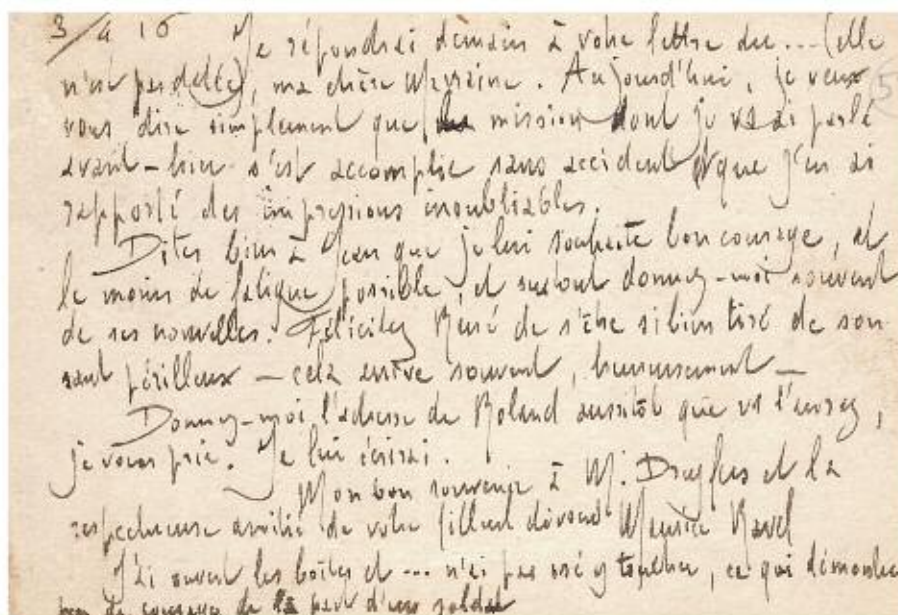 3/4 16 Je répondrai demain à votre lettre du... (elle
n'est pas datée), ma chère Marraine. Aujourd'hui, je veux
vous dire simplement que la mission dont je vs ai parlé
avant-hier s'est accomplie sans accident et que j'en ai
rapporté des impressions inoubliables.
Dites bien à Jean que je lui souhaite bon courage, et
le moins de fatigue possible, et surtout donnez-moi souvent
de ses nouvelles. Félicitez René de s'être si bien tiré de son
saut périlleux — cela arrive souvent, heureusement —
Donnez-moi l'adresse de Roland aussitôt que vs l'aurez,
je vous prie. Je lui écrirai.
Mon bon souvenir à M. Dreyfus et la
respectueuse amitié de votre filleul dévoué Maurice Ravel
J'ai ouvert les boîtes et ... n'ai pas osé y toucher, ce qui démontre
peu de courage de la part d'un soldat